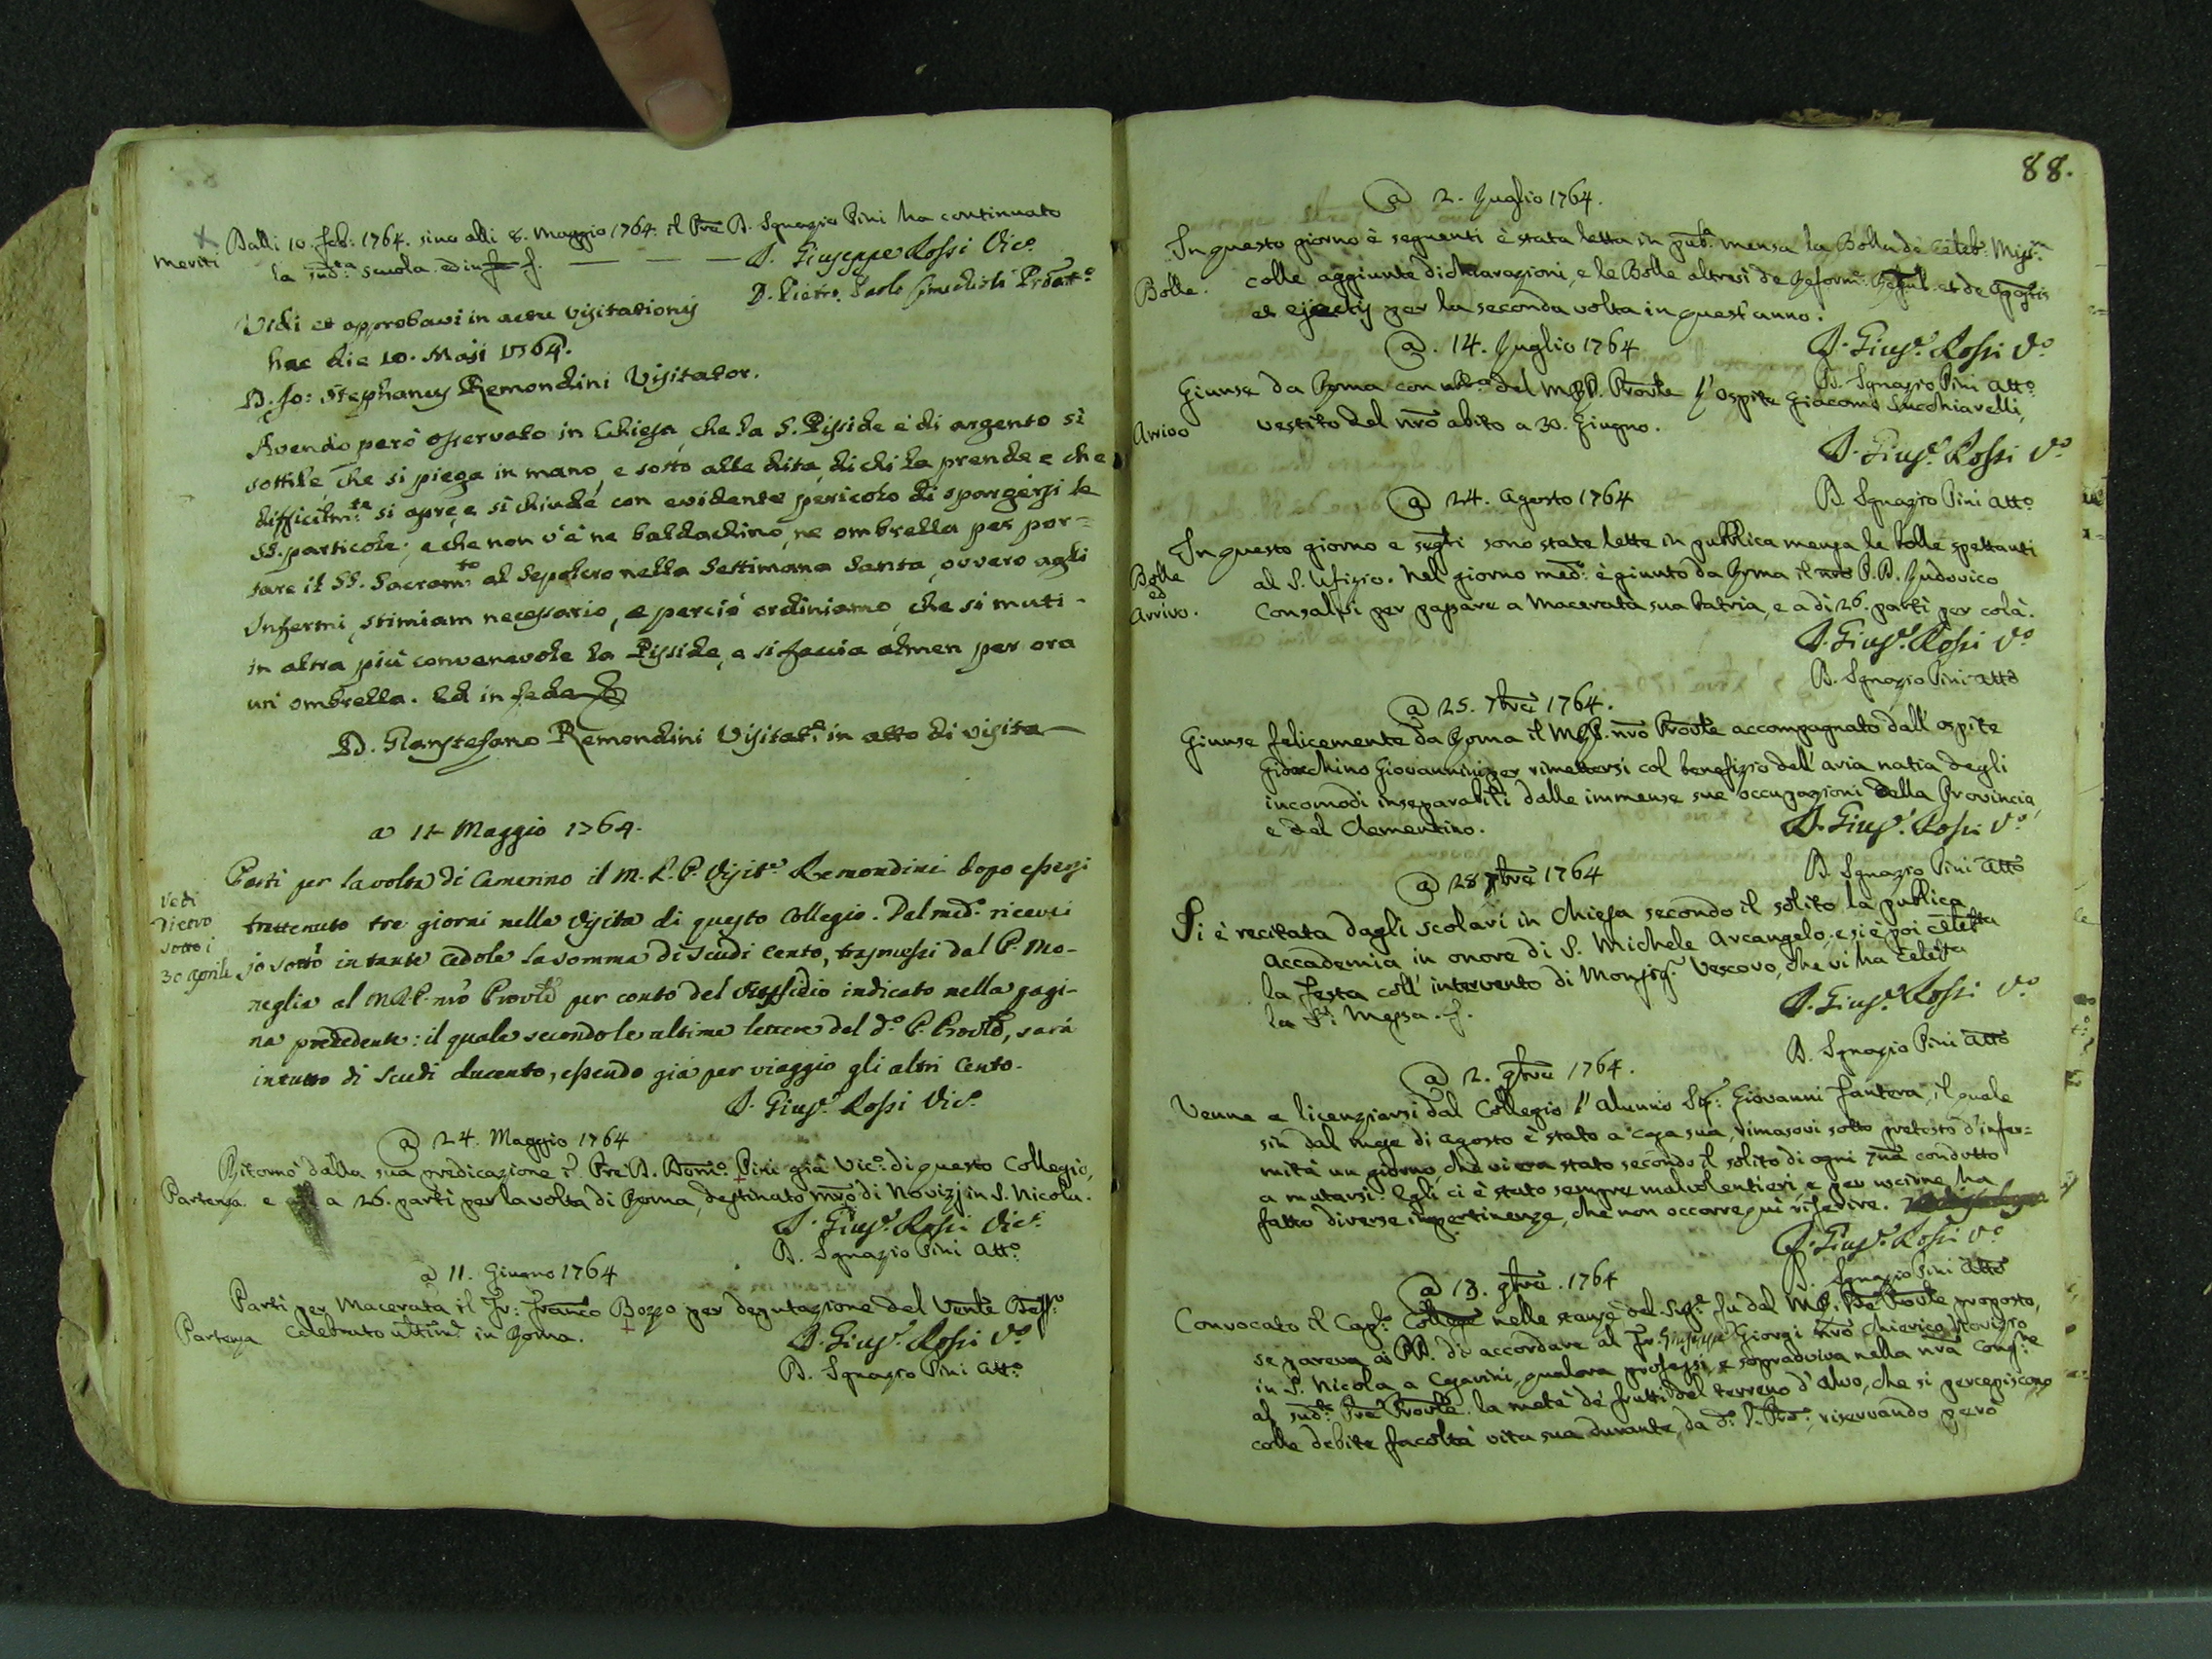 Dalli 10. feb: 1764. sino alli 8. Maggio 1764. il Pre D. Ignazio Pini ha continuato
Meriti
la sudta scuola. ed in f. — — — D. Giuseppe Rossi Vico.
D. Pietro Paolo Proatto
Vidi et approbavi in actu visitationis
hac die 10. Maji 1764.
D. Jo: Stephanus Remondini Visitator.
Avendo però osservato in Chiesa, che la S. Pisside è di argento sì
sottile, che si piega in mano, e sotto alle dita di chi la prende e che
difficilmte si apre, e si chiude con evidente pericolo di spargersi le
SS. particole; e che non v'è ne baldachino, ne ombrella per por=
tare il SS. Sacramto al Sepolcro nella Settimana Santa, ovvero agli
Infermi, stimiam necessario, e perciò ordiniamo, che si muti-
in altra più convenevole la Pisside, e si faccia almen per ora
un ombrella. Ed in fede
D. Gianstefano Remondini Visitatr. in atto di visita
a 11 Maggio 1764.
Partì per la volta di Camerino il M. R. P. Visitr. Remondini dopo essersi
Vedi
dietro
sotto i
30 aprile
trattenuto tre giorni nella visita di questo Collegio. Dal medo. ricevei
io sotto in tante cedole la somma di scudi cento, trasmessi dal P. Mo-
neglia al M.R.P. nro Provle per conto del sussidio indicato nella pagi-
na precedente: il quale secondo le ultime lettere del do. P. Provle, sarà
in tutto di scudi ducento, essendo già per viaggio gli altri cento.
D. Giuse. Rossi Vico.
@ 24. Maggio 1764
Ritornò dalla sua predicazione il Pre D. Domo. Pini già Vico. di questo Collegio,
Partenza. e a 26. partì per la volta di Roma, destinato mro di Novizj in S. Nicola.
D. Giuse. Rossi Vico.
D. Ignazio Pini Atto.
@ 11. Giugno 1764
Partì per Macerata il Fr: Franco Bozzo per deputazione del Vente Deffo.
Partenza celebrato ultimte in Roma.
D. Giuse. Rossi Vo.
D. Ignazio Pini Atto.
88.
@ 2. Luglio 1764.
In questo giorno è seguenti è stata letta in puba. mensa la Bolla de Celeb: Missm
Bolle. colle aggiunte dichiarazioni, e le Bolle altresì de Reform: Regul. et de Apostis
et ejectis per la seconda volta in quest'anno.
D. Giuse. Rossi Vo.
@. 14. Luglio 1764
D. Ignazio Pini Atto.
Giunse da Roma con ubba. del M.R.P. Provle l'ospite Giacomo Lucchiavelli,
Arrivo vestito del nro abito a 30. Giugno.
D. Giuse. Rossi Vo.
@ 24. Agosto 1764
D. Ignazio Pini Atto.
In questo giorno e segti sono state lette in pubblica mensa le bolle spettanti
Bolle
ed
Arrivo.
al S. Ufizio. Nel giorno medo. è giunto da Roma il P. D. Ludovico
Consalvi per passare a Macerata sua Patria, e a dì 26. partì per colà.
D. Giuse. Rossi Vo.
D. Ignazio Pini Atto
@ 25. 7bre 1764.
Giunse felicemente da Roma il M.R.P. nro Provle accompagnato dall'ospite
Gioacchino Giovannini per rimettersi col benefizio dell'aria natia degli
incomodi inseparabili dalle immense sue occupazioni della Provincia
e del Clementino.
D. Giuse. Rossi Vo.
D. Ignazio Pini Atto
@ 28 7bre 1764
Si è recitata dagli scolari in Chiesa secondo il solito la publica
Accademia in onore di S. Michele Arcangelo, e si è poi celebta
la festa coll'intervento di Monsigr. Vescovo, che vi ha celebta
la Sa. Messa. f.
D. Giuse. Rossi Vo.
D. Ignazio Pini Atto
@ 2. 9bre 1764.
Venne a licenziarsi dal Collegio l'Alunno Sigr: Giovanni Fantera, il quale
sin dal mese di Agosto è stato a casa sua, rimasovi sotto pretesto d'infer=
mità un giorno, che vi era stato secondo il solito di ogni 7na condotto
a mutarsi. Egli ci è stato sempre malvolentieri, e per uscirne ha
fatto diverse impertinenze, che non occorre quì riferire.
D. Giuse. Rossi Vo.
D. Ignazio Pini Atto
@ 13. 9bre. 1764
Convocato il Capo. nelle stanze del Supe. fu dal M.R. Pre Provle proposto,
se pareva ai PP. di accordare al Fr. Giuseppe Giorgi nro Chierico Novizio
in S. Nicola a Cesarini, qualora professi, e sopravviva nella nra Congne
al sudto Pre Provle. la metà de' frutti del terreno d'Alvo, che si percepiscono
colle debite facoltà vita sua durante, da do. P. Pro., riservando però